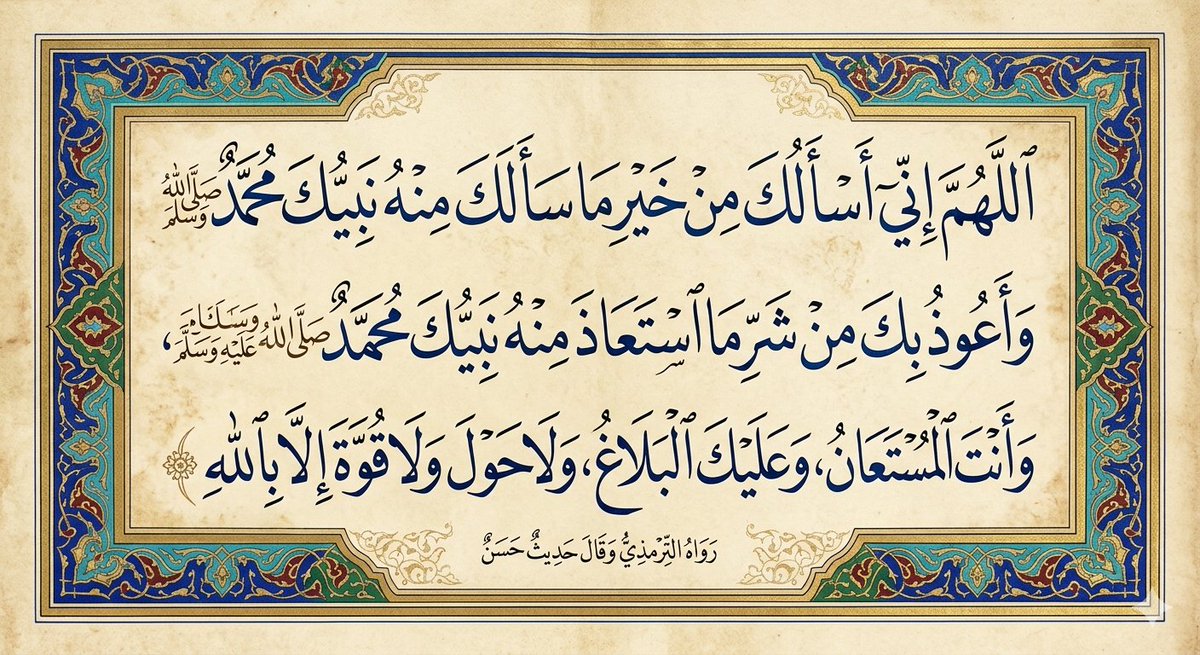 ٱللَّهُمَّ إِنِّيٓ أَسْأَلُكَ مِنْ خَيْرِ مَا سَأَلَكَ مِنْهُ نَبِيُّكَ مُحَمَّدٌ صَلَّى اللهُ وسلم
وَأَعُوذُ بِكَ مِنْ شَرِّ مَا ٱسْتَعَاذَ مِنْهُ نَبِيُّكَ مُحَمَّدٌ صَلَّى اللهُ عَلَيْهِ وَسَلَّمَ،
وَأَنْتَ ٱلْمُسْتَعَانُ، وَعَلَيْكَ ٱلْبَلَاغُ، وَلَا حَوْلَ وَلَا قُوَّةَ إِلَّا بِٱللهِ
رَوَاهُ التِّرْمِذِيُّ وَقَالَ حَدِيثٌ حَسَنٌ